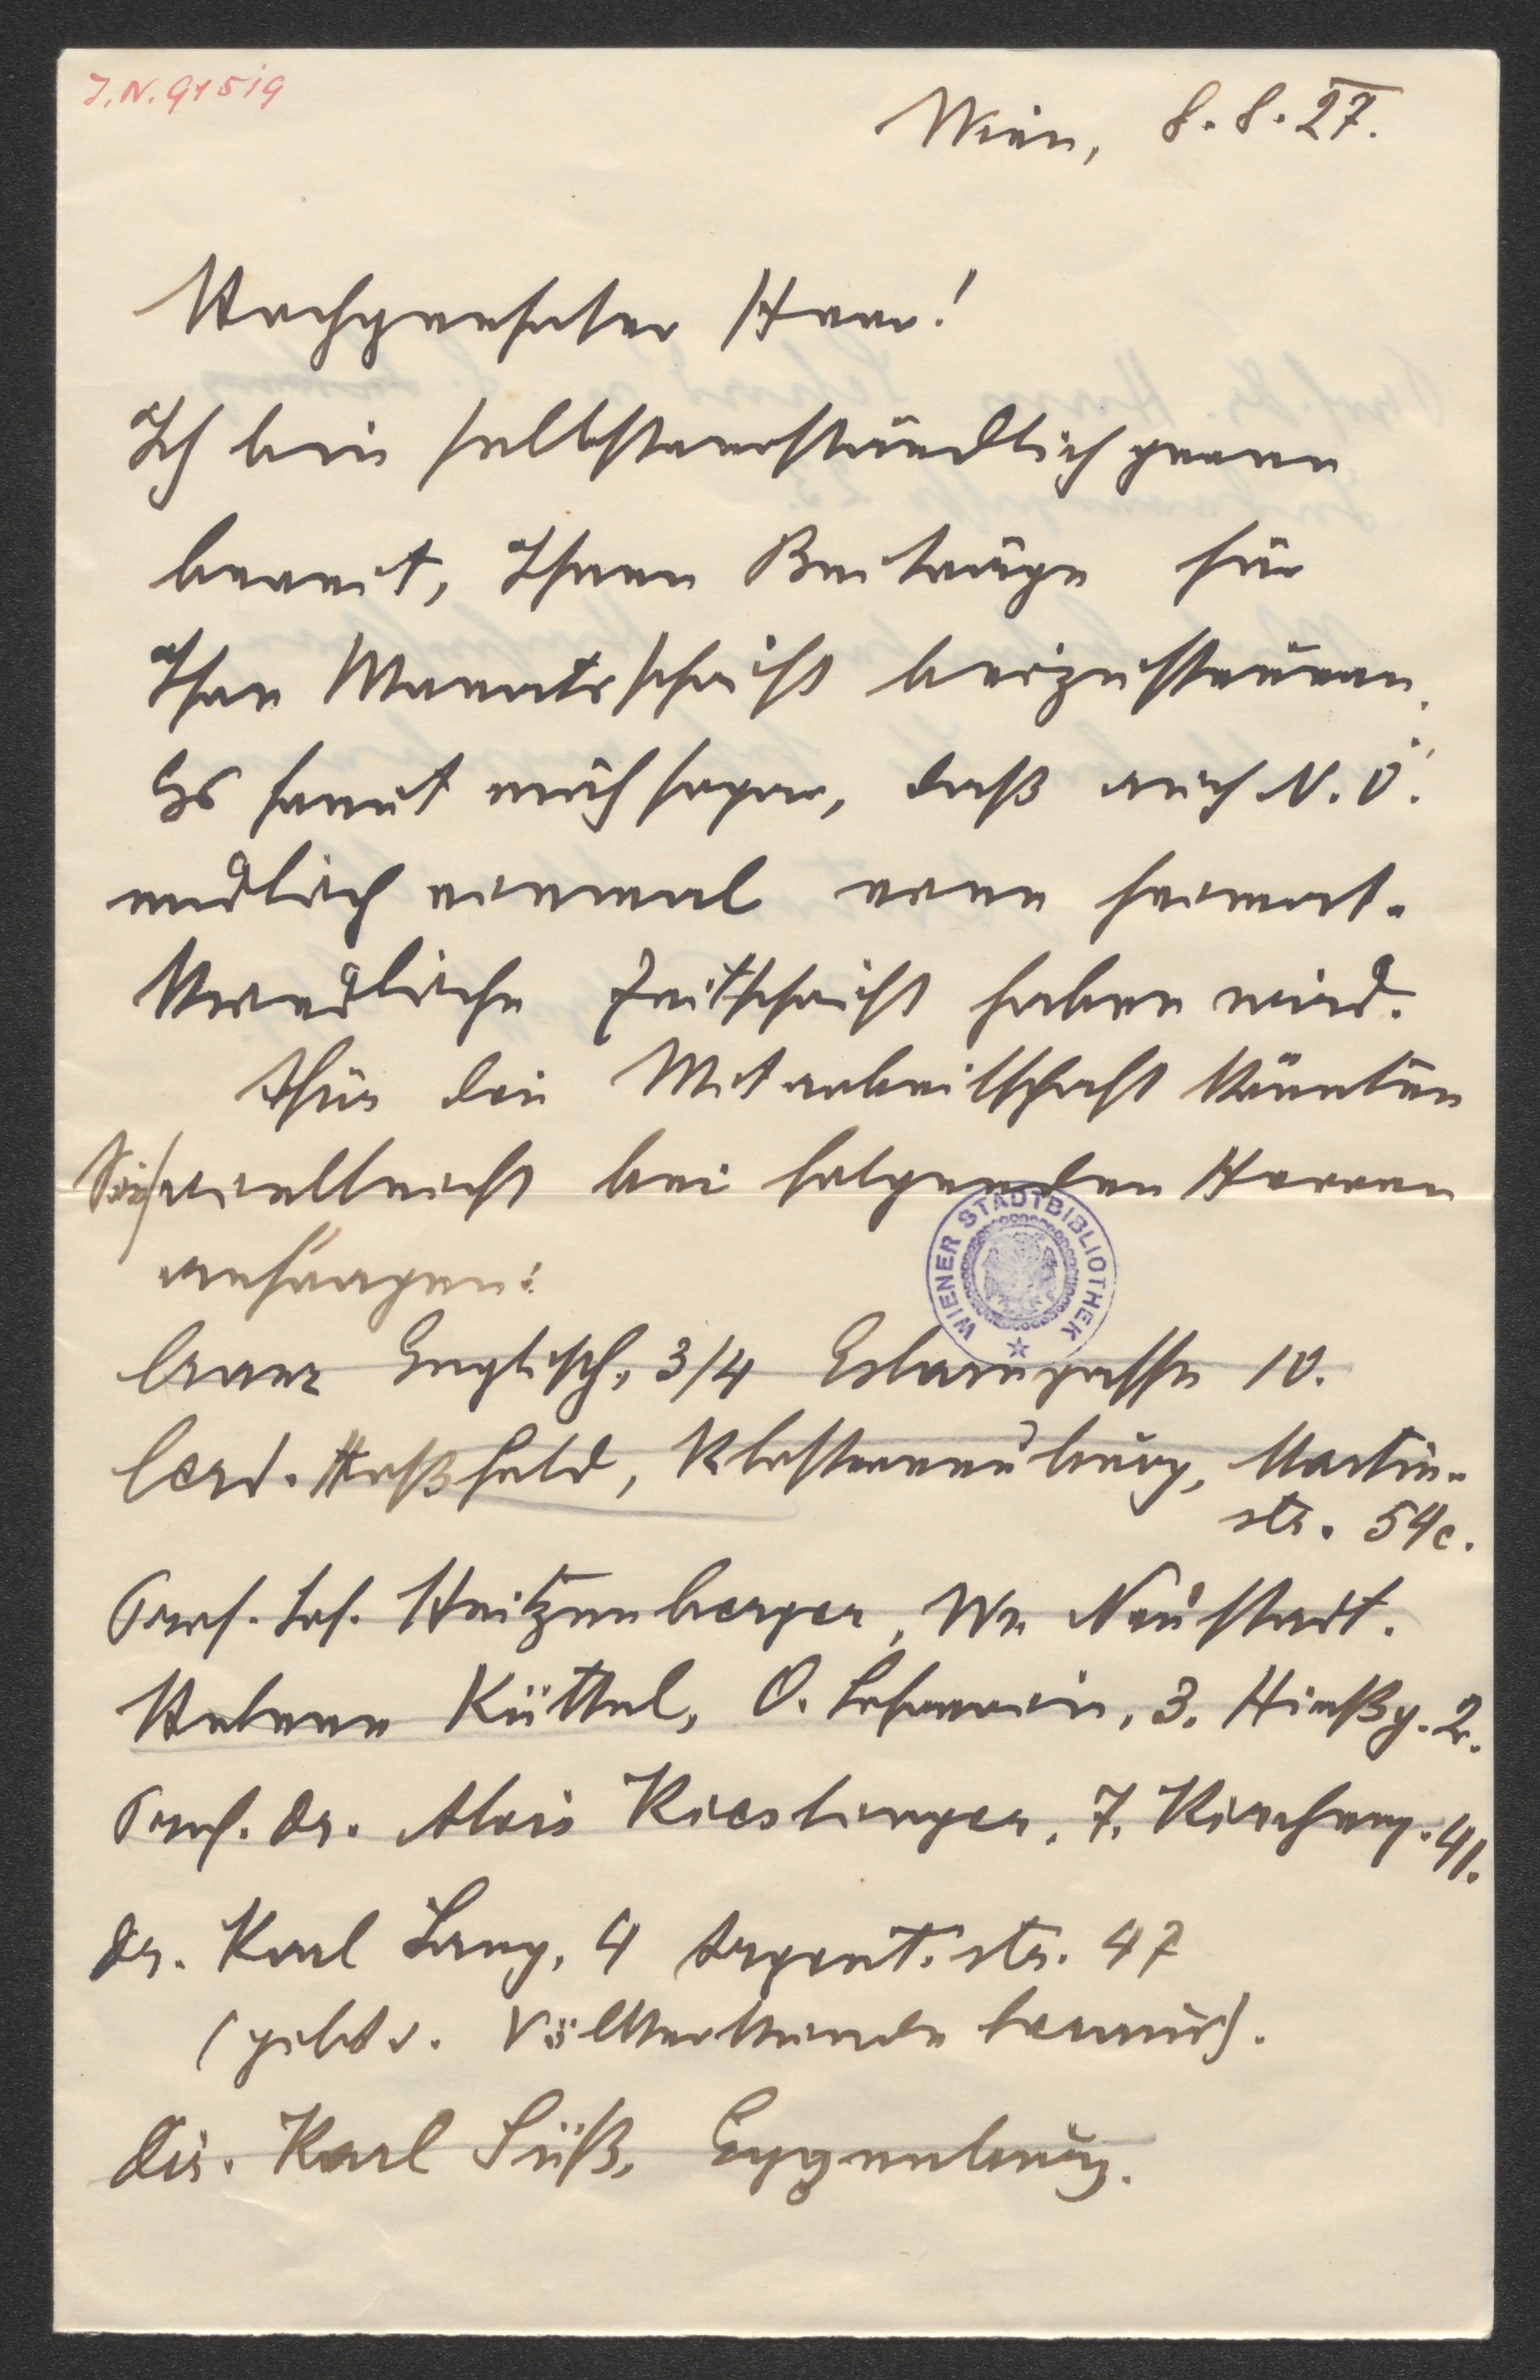 J.N. 91519
Wien, 8.8.27.
Hochgeehrter Herr!
Ich bin selbstverständlich gerne
bereit, Ihnen Beiträge für
Ihre Monatsschrift beizusteuern.
Es freut mich sogar, daß auch N.Ö.
endlich einmal eine heimat-
kundliche Zeitschrift haben wird.
Für die Mitarbeitschaft könnten
Sie vielleicht bei folgenden Herren
anfragen:
Franz Englisch, 3/4 Eslarngasse 10.
Ferd. Haßfeld, Klosterneuburg, Martin-
str. 54c.
Prof. Jos. Heitzenberger, Wr. Neustadt.
Helene Küttel, O. Lehrerin, 3. Hießg. 2.
Prof. Dr. Alois Kieslinger, 7. Kircheng. 41.
Dr. Karl Lang, 4 Argent. str. 47
(gibt d. Völkerkunde heraus).
Dir. Karl Süß, Eggenburg.
WIENER STADTBIBLIOTHEK